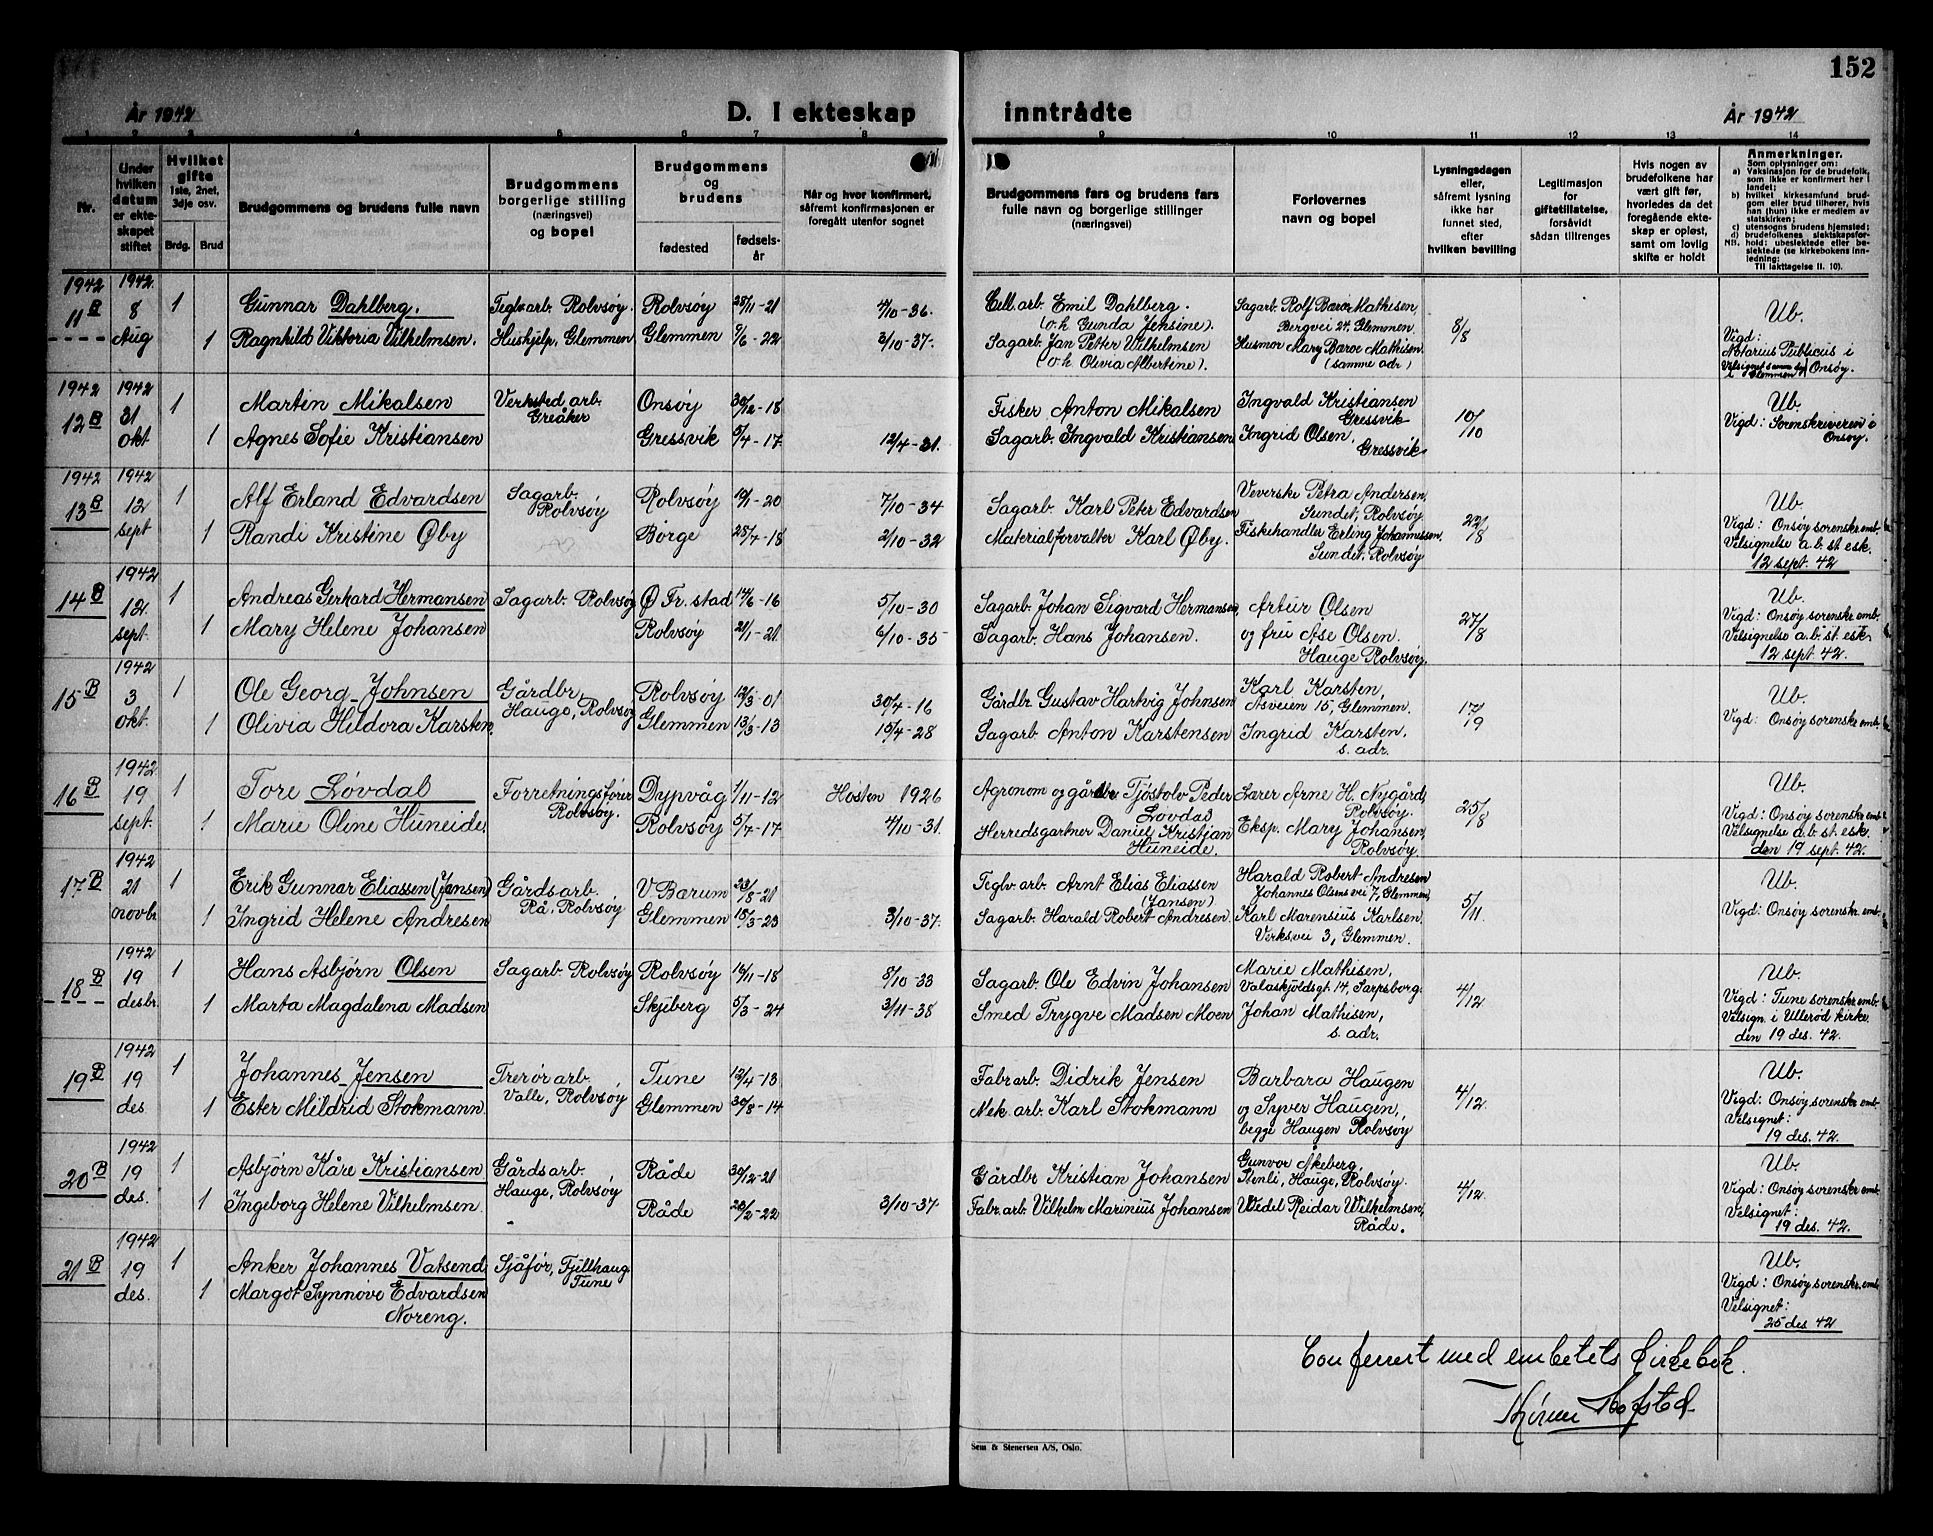 152
År 1942
D. I ekteskap inntrådte
År 1942
1 2 3 4 5 6 7 8 9 10 11 12 13 14
Nr.
Under hvilken datum er ekteskapet stiftet
Hvilket gifte
1ste, 2net, 3dje osv.
Brdg. Brud
Brudgommens og brudens fulle navn
Brudgommens borgerlige stilling (næringsvei) og bopel
Brudgommens og brudens
fødested
fødselsår
Når og hvor konfirmert, såfremt konfirmasjonen er foregått utenfor sognet
Brudgommens fars og brudens fars fulle navn og borgerlige stillinger (næringsvei)
Forlovernes navn og bopel
Lysningsdagen eller, såfremt lysning ikke har funnet sted, efter hvilken bevilling
Legitimasjon for giftetillatelse, forsåvidt sådan tiltrenges
Hvis nogen av brudefolkene har vært gift før, hvorledes da det foregående ekteskap er opløst, samt om lovlig skifte er holdt
Anmerkninger.
Som oplysning om:
a) Vaksinasjon for de brudefolk, som ikke er konfirmert her i landet;
b) hvilket kirkesamfund brudgom eller brud tilhører, hvis han (hun) ikke er medlem av statskirken;
c) utensogns brudens hjemsted;
d) brudefolkenes slektskapsforhold: ubeslektede eller beslektede (se kirkebokens innledning: Til iakttagelse II. 10).
NB.
1942 1942
11 B 8 Aug 1 Gunnar Dahlberg. Teglv.arb. Rolvsøy. Rolvsøy 28/11-21 4/10-36. Cell.arb. Emil Dahlberg. (o.h. Gunda Jensine). Sagarb. Rolf Bærøe Mathisen, Bergvei 24, Glemmen. 8/8 Ub.
1 Ragnhild Viktoria Vilhelmsen. Hushjelp, Glemmen Glemmen 9/6-22 3/10-37. Sagarb. Jan Petter Vilhelmsen (o.h. Olivia Albertine). Husmor Mary Bærøe Mathisen. (samme adr) Vigd: Notarius Publicus i Onsøy. Velsignet samme dag i Glemmen
1942 1942
12 B 31 okt 1 Martin Mikalsen Verksted arb. Greåker Onsøy 30/12-18 Fisker Anton Mikalsen Ingvald Kristiansen Gressvik 10/10 Ub.
1 Agnes Sofie Kristiansen Gressvik 5/4-17 12/4-31. Sagarb. Ingvald Kristiansen Ingrid Olsen, Gressvik Vigd: Sorenskriveren i Onsøy.
1942 1942
13 B 12 sept 1 Alf Erland Edvardsen Sagarb. Rolvsøy Rolvsøy 19/1-20 7/10-34 Sagarb. Karl Peter Edvardsen Veverske Petra Andersen, Sundet, Rolvsøy 22/8 Ub.
1 Randi Kristine Øby Børge 28/4-18 2/10-32 Materialforvalter Karl Øby. Fiskehandler Erling Johannessen, Sundet, Rolvsøy Vigd: Onsøy sorenskr.emb. Velsignelse a.b. st. esk. 12 sept. 42
1942
14 B 12 sept. 1 Andreas Gerhard Hermansen Sagarb. Rolvsøy Ø Fr.stad 14/6-16 5/10-30 Sagarb. Johan Sigvard Hermansen, Artur Olsen 27/8 Ub.
1 Mary Helene Johansen Rolvsøy 21/1-21 6/10-35 Sagarb. Hans Johansen. og fru Åse Olsen. Hauge Rolvsøy. Vigd: Onsøy sorenskr.emb. Velsignelse a.b. st. esk. 12 sept. 42.
1942
15 B 3 okt. 1 Ole Georg Johnsen Gårdbr. Hauge, Rolvsøy Rolvsøy 12/3-01 30/4-16 Gårdbr. Gustav Hartvig Johnsen Karl Karsten, Åsveien 15, Glemmen. 17/9 Ub.
1 Olivia Hildora Karsten. Glemmen 13/3-13 15/4-28 Sagarb. Anton Karstensen Ingrid Karsten. s. adr. Vigd: Onsøy sorenskr.emb.
1942
16 B 19 sept. 1 Tore Løvdal Forretningsfører Rolvsøy. Dypvåg 1/11-12 Høsten 1926 Agronom og gårdbr Tjøstolv Peder Løvdal Lærer Arne H. Nygård, Rolvsøy. 25/8 Ub.
1 Marie Oline Huneide. Rolvsøy 5/7-17 4/10-31. Herredsgartner Daniel Kristjan Huneide. Eksp. Mary Johansen, Rolvsøy. Vigd: Onsøy sorenskr.emb. Velsignelse a.b. st. esk. den 19 sept. 42.
1942
17 B 21 novbr 1 Erik Gunnar Eliassen (Jansen) Gårdsarb. Rå, Rolvsøy V Bærum 23/8-21 Teglv.arb. Arnt Elias Eliassen (Jansen) Harald Robert Andresen Johannes Olsens vei 7, Glemmen, 5/11. Ub.
1 Ingrid Helene Andresen Glemmen 18/3-23 3/10-37. Sagarb. Harald Robert Andresen. Karl Marensius Karlsen. Verksvei 3, Glemmen. Vigd: Onsøy sorenskr.emb.
1942
18 B 19 desbr. 1 Hans Asbjørn Olsen Sagarb. Rolvsøy Rolvsøy 16/11-18 8/10-33 Sagarb. Ole Edvin Johansen Marie Mathisen, Valaskjoldsgt. 14, Sarpsborg. 4/12 Ub.
1 Marta Magdalena Madsen Skjeberg 5/3-24 3/11-38 Smed Trygve Madsen Moen Johan Mathisen, s. adr. Vigd: Tune sorenskr.emb. Velsign. i Ullerød kirke. den 19 des. 42.
1942
19 B 19 des 1 Johannes Jensen Trerør arb. Valle, Rolvsøy Tune 12/4-13 Fabr.arb. Didrik Jensen Barbara Haugen 4/12. Ub.
1 Ester Mildrid Stokmann. Glemmen 30/8-14 Mek.arb. Karl Stokmann og Syver Haugen, begge Haugen Rolvsøy Vigd: Onsøy sorenskr.emb. Velsignet: 19 des. 42.
1942
20 B 19 des. 1 Asbjørn Kåre Kristiansen Gårdsarb. Hauge, Rolvsøy Råde 30/12-21 Gårdbr Kristian Johansen Gunvor Akeberg, Stenli, Hauge, Rolvsøy. 4/12. Ub.
1 Ingeborg Helene Vilhelmsen. Råde 23/2-22 3/10-37. Fabr.arb. Vilhelm Marinius Johansen Wedel Reidar Wilhelmsen, Råde. Vigd: Onsøy sorenskr.emb. Velsignet: 19 des. 42.
1942
21 B 19 des. 1 Anker Johannes Vatsend Sjåfør, Fjillhaug Tune Ub.
1 Margot Synnøve Edvardsen Noreng. Vigd: Onsøy sorenskr.emb. Velsignet: 25 des 42
Conferert med embetets kirkebok.
Sem & Stenersen A/S, Oslo.